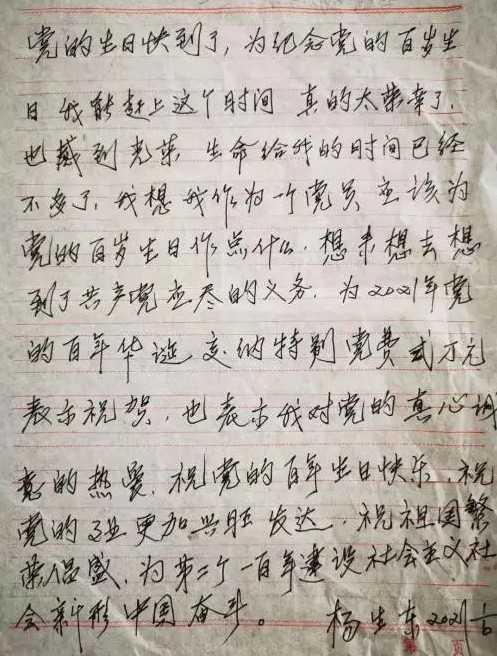 党的生日快到了，为纪念党的百岁生
日 我能赶上这个时间 真的太荣幸了.
也感到光荣 生命给我的时间已经
不多了，我想我作为一个党员应该为
党的百岁生日作点什么. 想来想去想
到了共产党应尽的义务. 为2021年党
的百年华诞 交纳特别党费贰万元
表示祝贺，也表示我对党的真心诚
意的热爱. 祝党的百年生日快乐，祝
党的 更加兴旺发达. 祝祖国繁
荣昌盛. 为第二个一百年建设社会主义社
会新 中国奋斗。 杨生东 2021
页